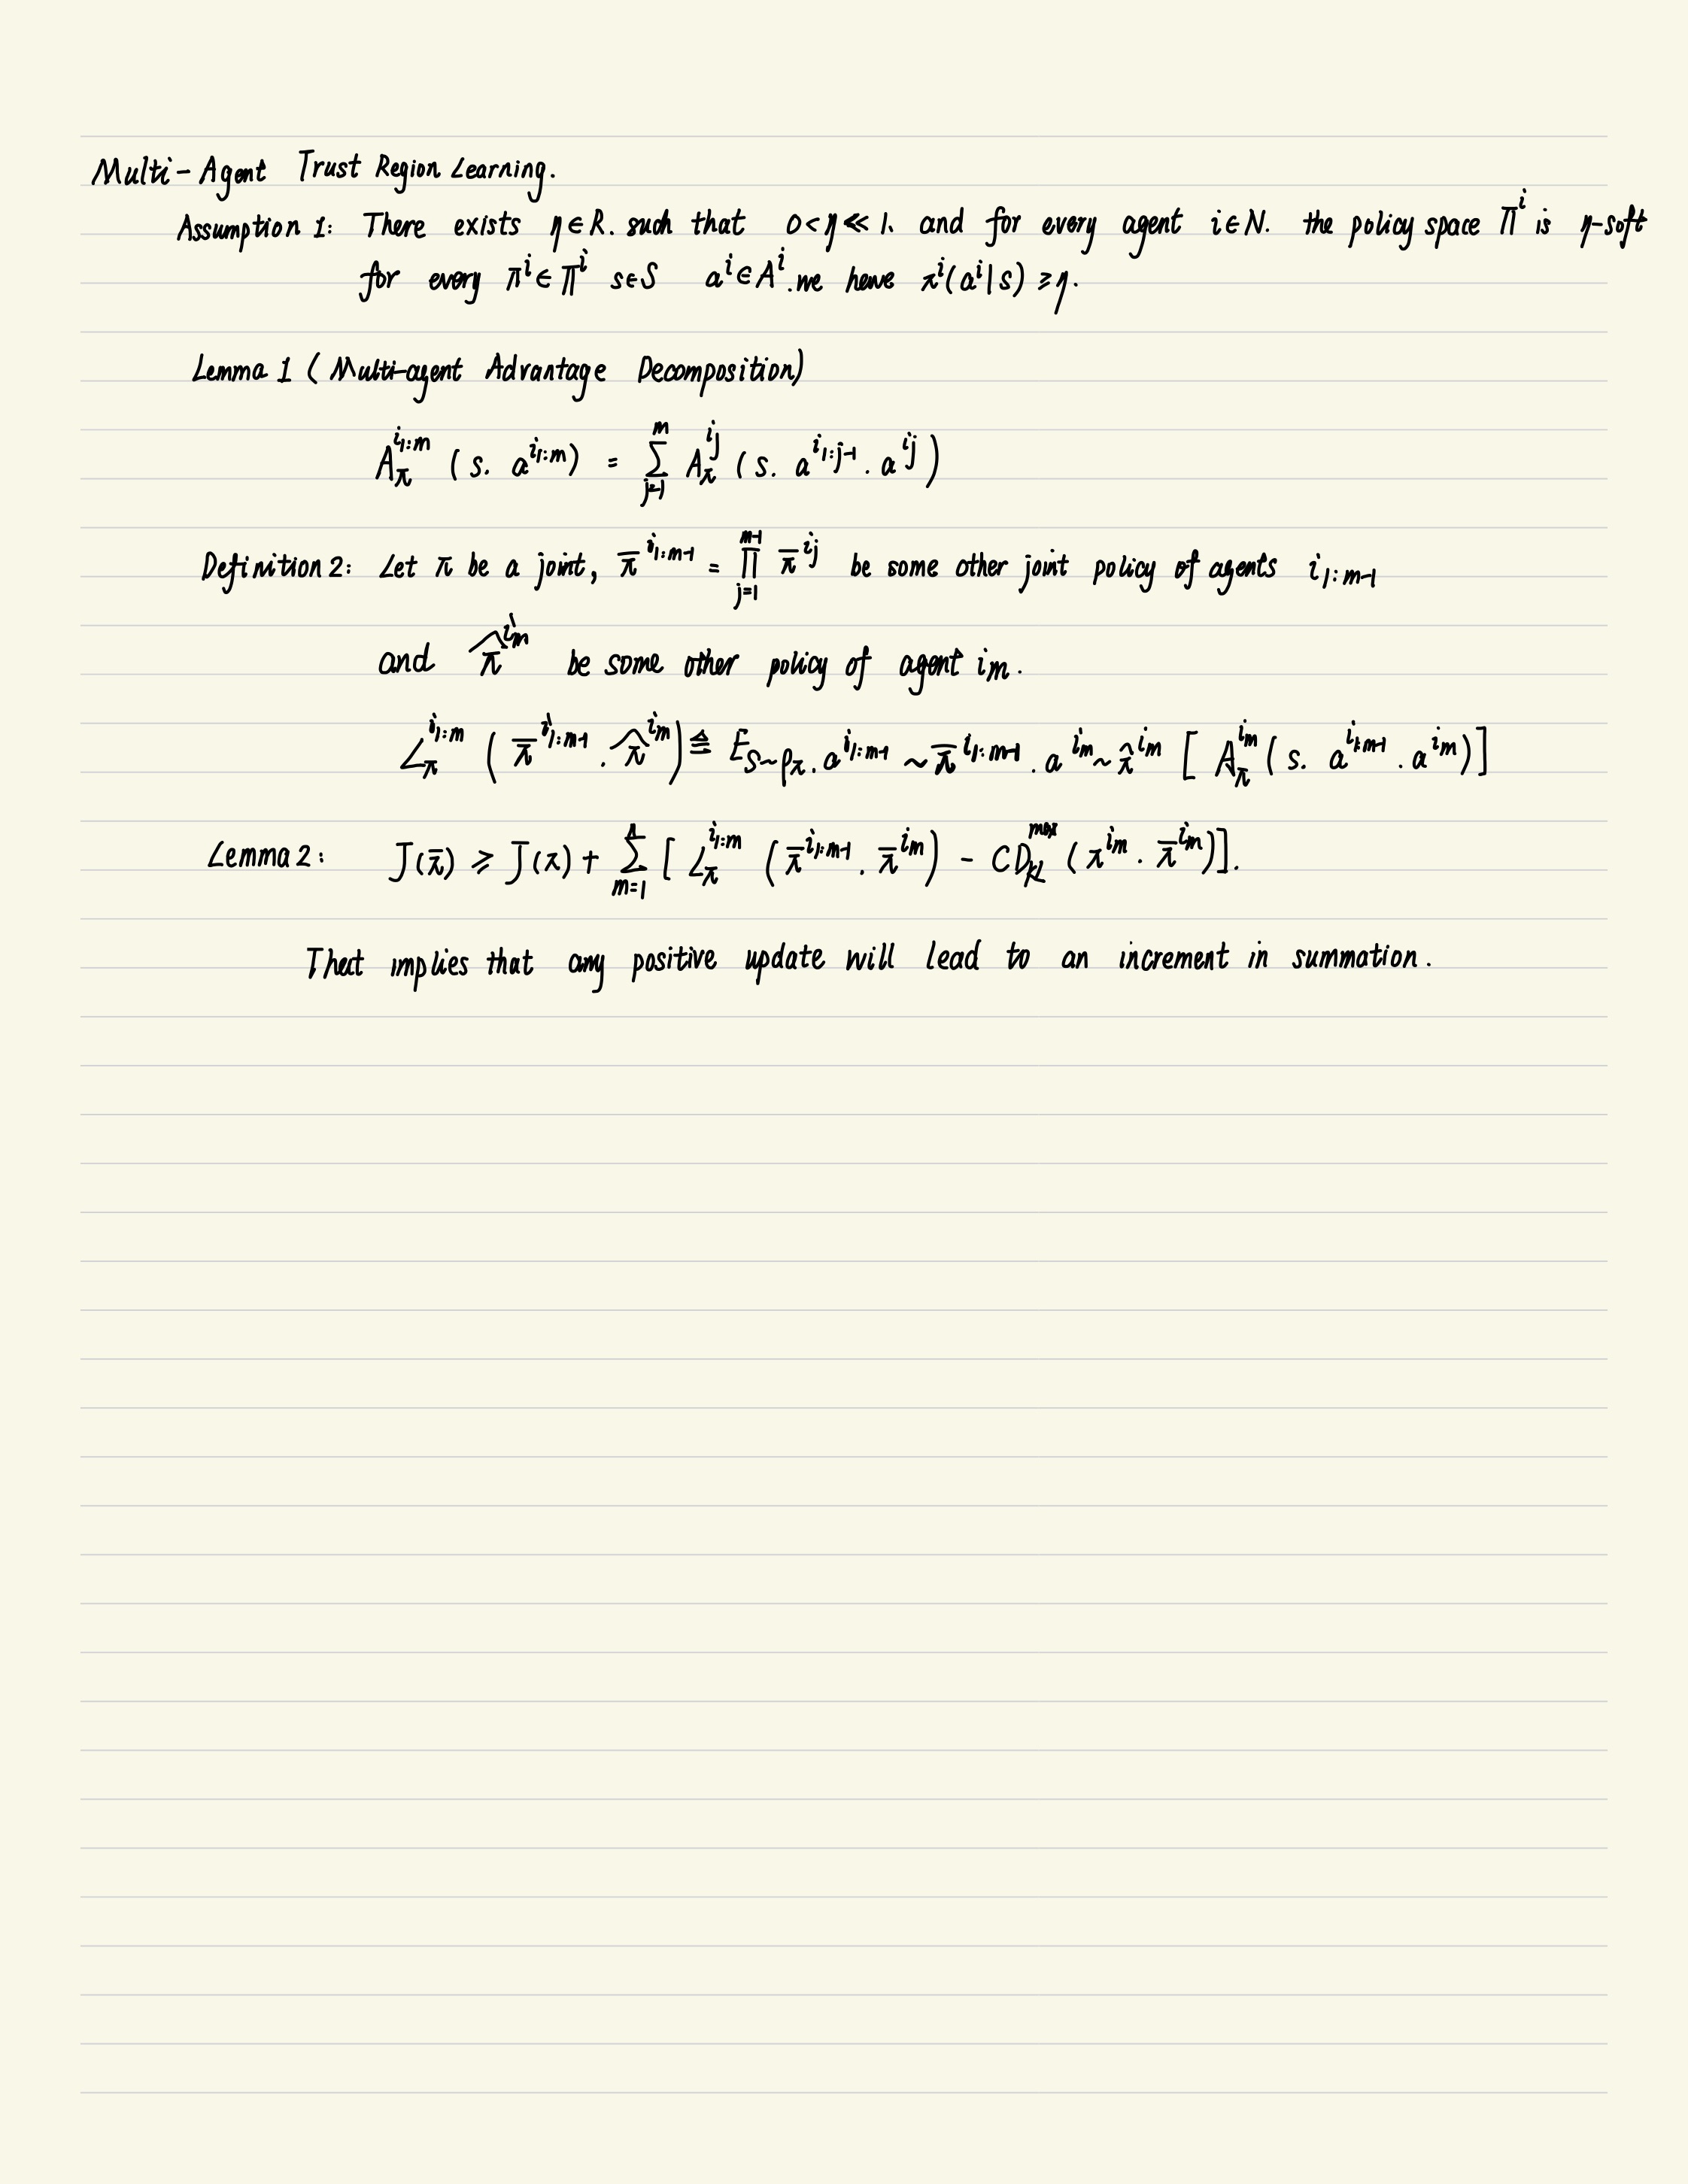 Multi-Agent Trust Region Learning.
Assumption 1: There exists η∈R. such that 0<η≪1. and for every agent i∈N. the policy space Π^i is η-soft
for every π^i∈Π^i s∈S a^i∈A^i. we have π^i(a^i|s)≥η.
Lemma 1 (Multi-agent Advantage Decomposition)
A_π^{i_{1:m}} (s. a^{i_{1:m}}) = Σ_{j=1}^{m} A_π^{i_j} (s. a^{i_{1:j-1}}. a^{i_j})
Definition 2: Let π be a joint, π̄^{i_{1:m-1}} = ∏_{j=1}^{m-1} π̄^{i_j} be some other joint policy of agents i_{1:m-1}
and π̂^{i_m} be some other policy of agent i_m.
L_π^{i_{1:m}} (π̄^{i_{1:m-1}}. π̂^{i_m}) ≜ E_{s~ρ_π. a^{i_{1:m-1}}~π̄^{i_{1:m-1}}. a^{i_m}~π̂^{i_m}} [A_π^{i_m} (s. a^{i_{1:m-1}}. a^{i_m})]
Lemma 2: J(π̄) ≥ J(π) + Σ_{m=1}^{n} [L_π^{i_{1:m}} (π̄^{i_{1:m-1}}. π̄^{i_m}) - CD_{KL}^{max} (π^{i_m}. π̄^{i_m})].
That implies that any positive update will lead to an increment in summation.